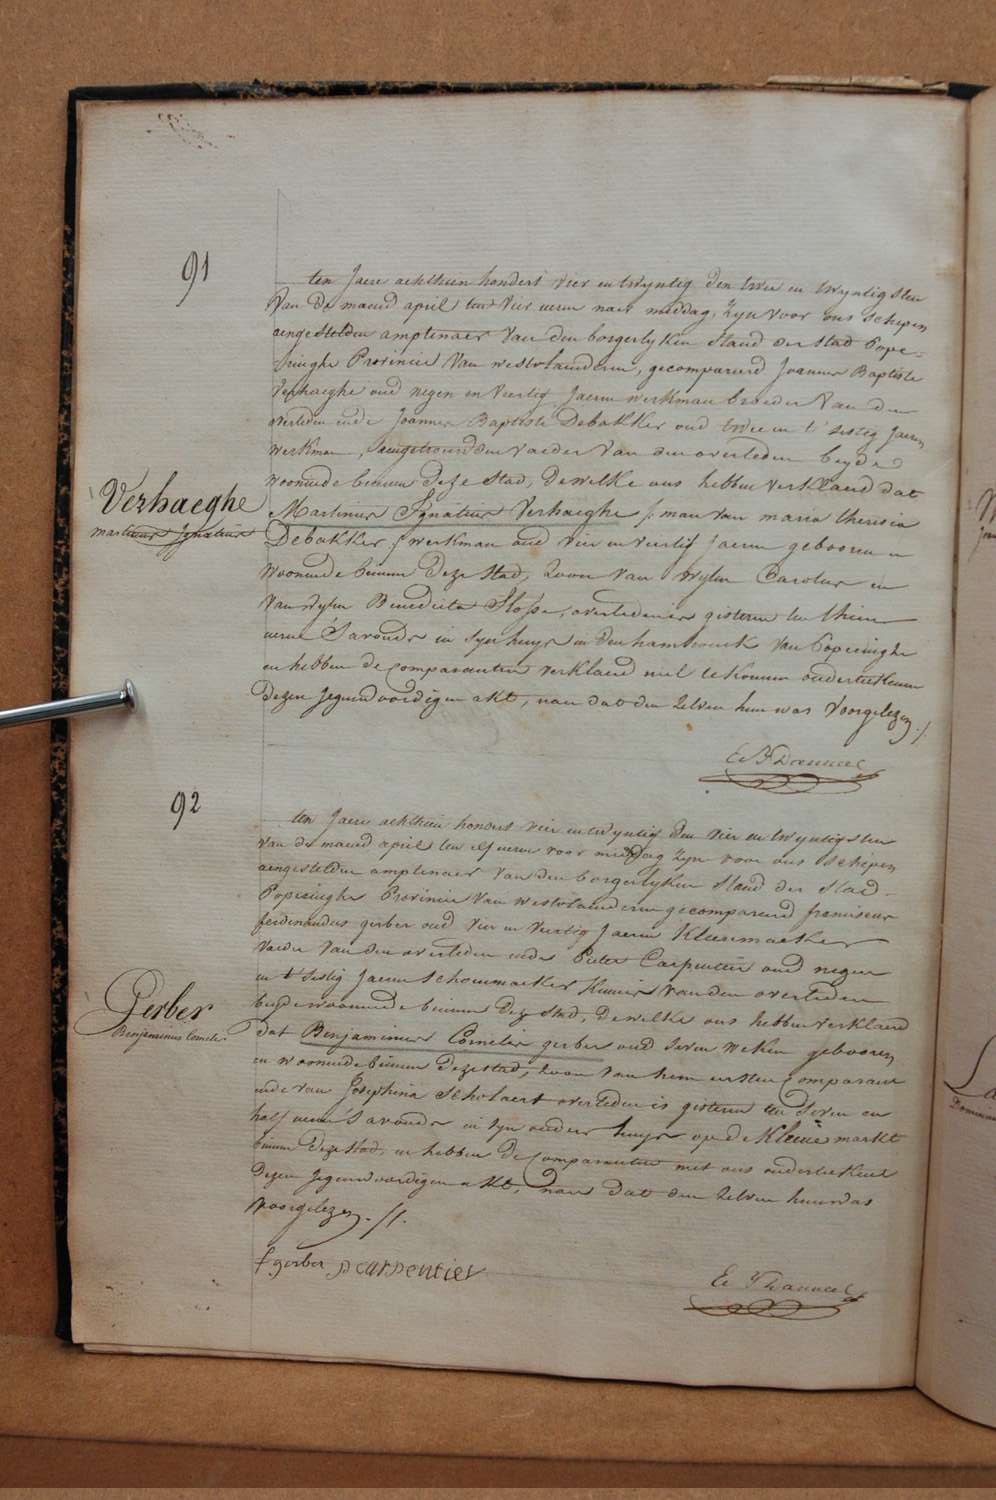 91
ten Jaere achthien hondert vier en twyntig den twee en twyntigsten
van de maend april ten vier uren naer middag, zyn voor ons schepen
aengestelden amptenaer van den borgerlyken stand der stad Pope-
-ringhe Provincie van westvlaenderen, gecompareerd Joannes Baptiste
Verhaeghe oud negen en veertig Jaeren werkman broeder van den
overleden ende Joannes Baptiste Debakker oud twee en t' sestig Jaeren
werkman, aengetrouwden vaeder van den overleden beyde
woonende binnen deze stad, dewelke ons hebben verklaerd dat
Verhaeghe
martinus Ignatius
Martinus Ignatius Verhaeghe /: man van maria theresia
Debakker :/ werkman oud vier en veertig Jaeren gebooren en
woonende binnen deze stad, zoon van wylen Carolus en
van wylen Benedicta Stosse, overleden is gisteren ten thien
uren s'avonds in syn huys in den hambrouck van Poperinghe
en hebben de comparanten verklaerd niet te konnen onderteekenen
dezen Jegenwoordigen akt, naer dat den zelven hun was voorgelezen ./.
92
ten Jaere achthien hondert vier en twyntig den vier en twyntigsten
van de maend april ten elf uren voor middag zyn voor ons schepen
aengestelden amptenaer van den borgerlyken stand der stad
Poperinghe Provincie van westvlaenderen gecompareerd franciscus
ferdinandus gerber oud vier en veertig Jaeren Kleermaeker
vaeder van den overleden ende Pieter Carpentier oud negen
en t' sestig Jaeren schoenmaeker Kennis van den overleden
beyde woonende binnen deze stad, dewelke ons hebben verklaerd
Gerber
Benjaminus Cornelis
dat Benjaminus Cornelis gerber oud seven weken gebooren
en woonende binnen deze stad, zoon van hem eersten comparant
ende van Josephina Scholaert overleden is gisteren ten seven en
half uren s'avonds in syn ouders huys op de Kleine markt
binnen deze stad, en hebben de comparanten met ons onderteekent
dezen Jegenwoordigen akt, naer dat den zelven hun was
voorgelezen. //.
f gerber p carpentier